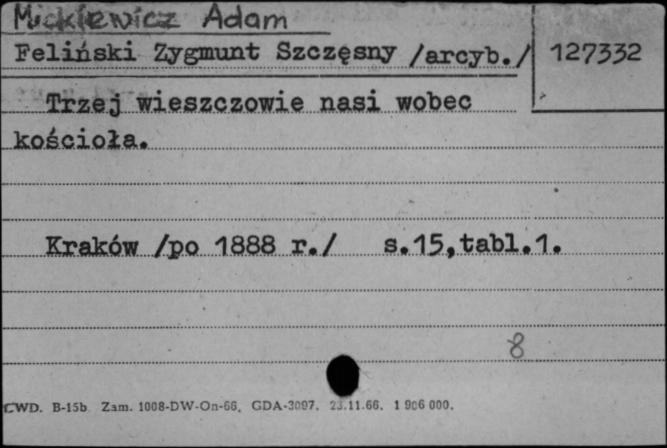 Mickiewicz Adam
Feliński Zygmunt Szczęsny /arcyb./ 127332
Trzej wieszczowie nasi wobec
kościoła.
Kraków /po 1888 r./ s.15,tabl.1.
8
CWD. B-15b Zam. 1008-DW-On-66. GDA-3097. 23.11.66. 1 906 000.